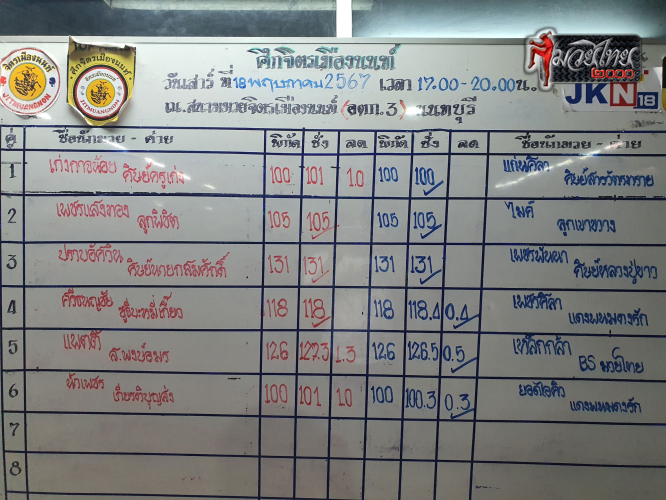 ศึกจิตรเมืองนนท์
วันเสาร์ ที่ 18 พฤษภาคม 2567 เวลา 17.00-20.00 น.
ณ.สนามมวยจิตรเมืองนนท์ (อตก.3) นนทบุรี
มวยไทย
JKN18
จิตรเมืองนนท์
JITMUANGNON
คู่ ชื่อนักมวย - ค่าย พิกัด ชั่ง ลด พิกัด ชั่ง ลด ชื่อนักมวย - ค่าย
1 เก่งกาจน้อย ศิษย์ครูเก่ง 100 101 1.0 100 100 แก่นศิลา
2 เพชรแสงทอง ลูกพิชิต 105 105 105 105 ไมค์ ลูกเขาขวาง
3 ปราบอัศวิน ศิษย์นายกสมศักดิ์ 131 131 131 131 ศิษย์หลวงปู่ขาว
4 ศรีชพญชัย 118 118 118 118.4 0.4 เพชรศิลา แดงพหมดงรัก
5 แพตตี้ ส.พงษ์อมร 126 127.3 1.3 126 126.5 0.5 เหล็กกล้า BS มวยไทย
6 น้าเพชร เกียรติบุญส่ง 100 101 1.0 100 100.3 0.3 ยอดไอคิว แดงพหมดงรัก
7
8